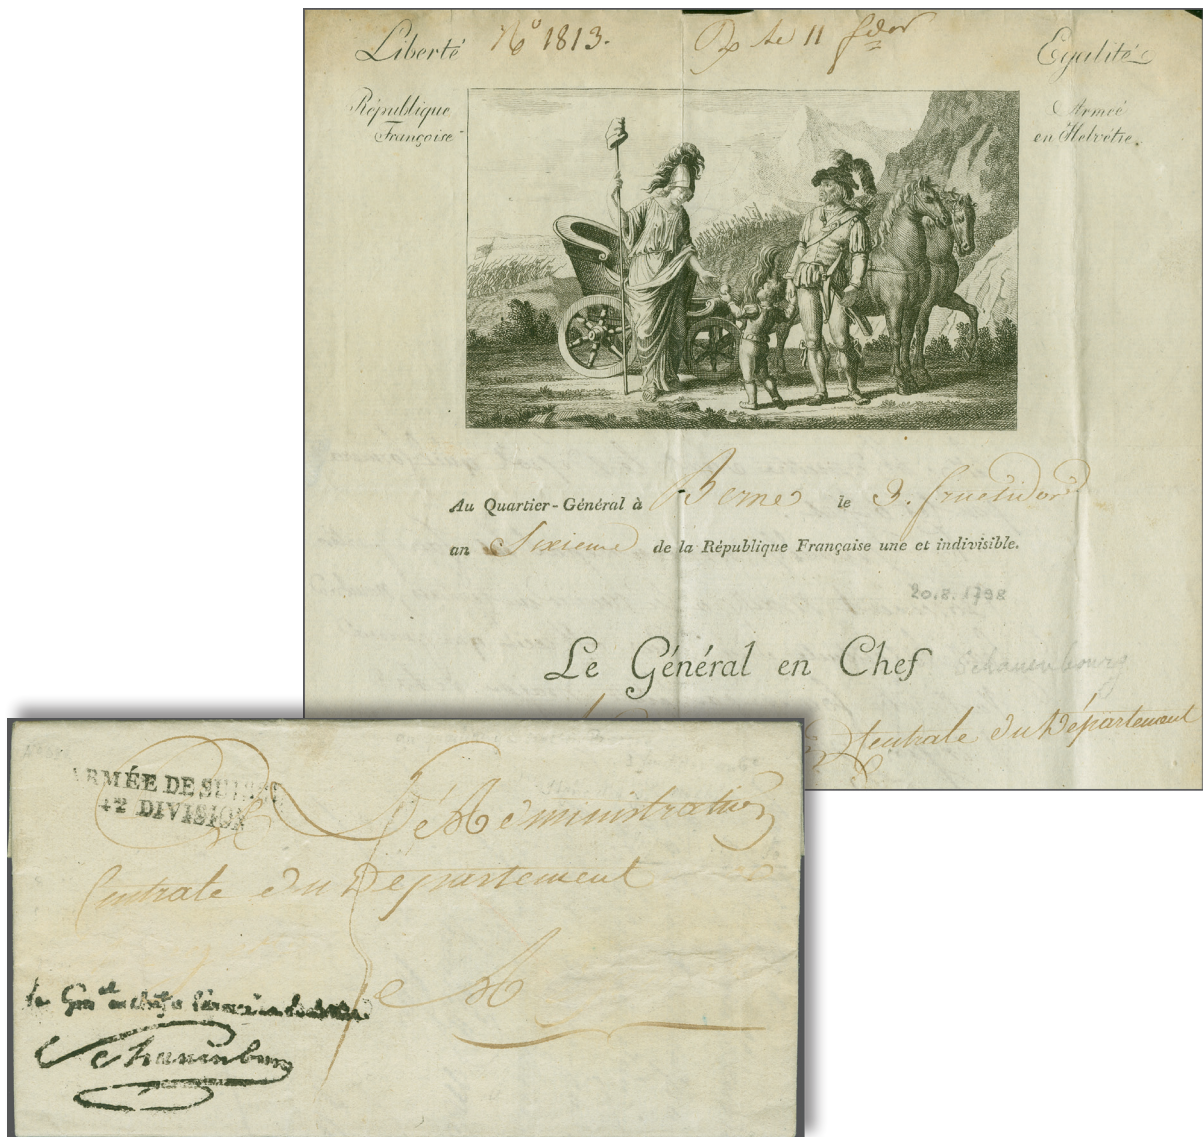 Liberté No 1813. le 11 Egalité
République
Française
Armée
en Helvétie.
Au Quartier-Général à Berne le 3. fructidor
an Sixieme de la République Française une et indivisible.
20.8.1798
Le Général en Chef
Schauenbourg
Centrale du Département
ARMÉE DE SUISSE
+2 DIVISION
A L'Administration
Centrale du Département
A
le Gnal en chef
Schauenburg